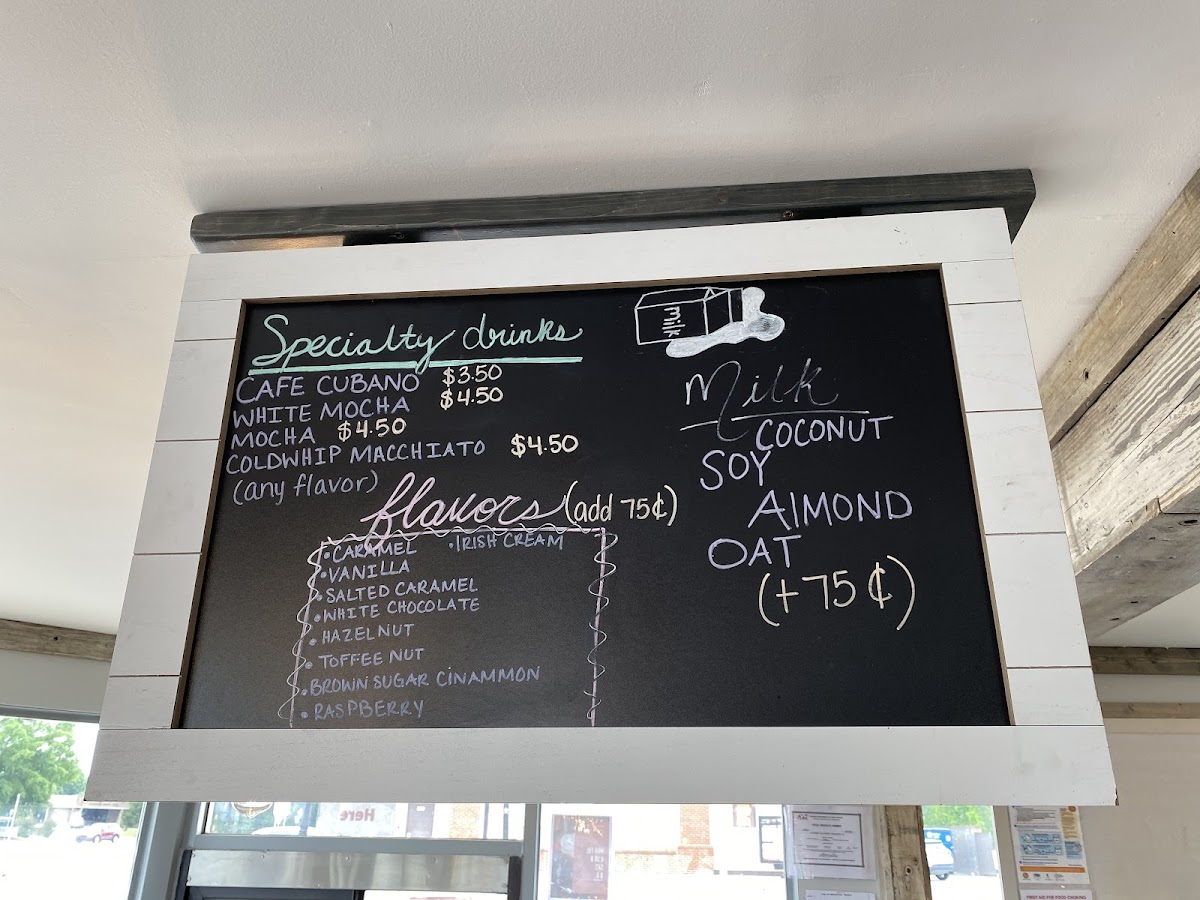 Specialty drinks
CAFE CUBANO $3.50
WHITE MOCHA $4.50
MOCHA $4.50
COLDWHIP MACCHIATO $4.50
(any flavor)
flavors (add 75¢)
• CARAMEL • IRISH CREAM
• VANILLA
• SALTED CARAMEL
• WHITE CHOCOLATE
• HAZELNUT
• TOFFEE NUT
• BROWN SUGAR CINAMMON
• RASPBERRY
milk
Milk
COCONUT
SOY
AlMOND
OAT
(+75¢)
Here